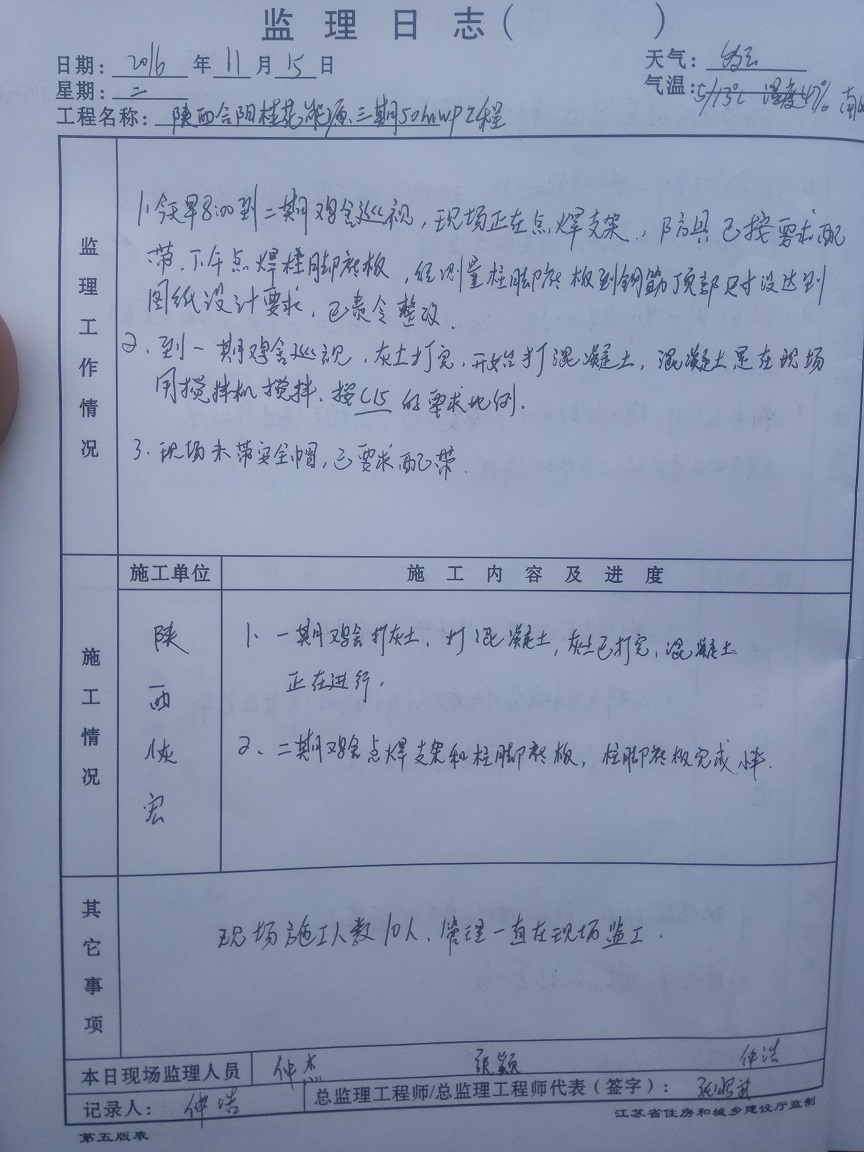 监理日志( )
日期: 2016 年 11 月 15 日 天气: 多云
星期: 二 气温: 5/13℃ 湿度47%
工程名称: 陕西合阳桂花能源三期50MWP工程
监理工作情况
1.今早8:00到二期鸡舍巡视,现场正在点焊支架,防具已按要求配
带.下午点焊柱脚底板,经测量柱脚底板到钢筋顶部尺寸没达到
图纸设计要求,已责令整改.
2.到一期鸡舍巡视,灰土打完,开始打混凝土,混凝土是在现场
用搅拌机搅拌.按C15的要求比例.
3.现场未带安全帽,已要求配带.
施工情况
施工单位 施工内容及进度
陕西恢宏
1.一期鸡舍打灰土、打混凝土,灰土已打完,混凝土
正在进行.
2、二期鸡舍点焊支架和柱脚底板,柱脚底板完成
其它事项
现场施工人数10人、管理一直在现场监工.
本日现场监理人员 仲杰 张颖 仲浩
记录人: 仲浩 总监理工程师/总监理工程师代表(签字):
第五版表 江苏省住房和城乡建设厅监制